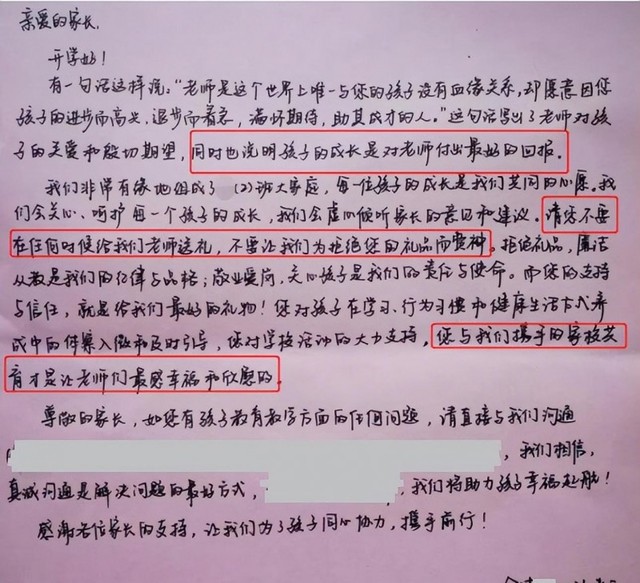 亲爱的家长,
开学好!
有一句话这样说:"老师是这个世界上唯一与您的孩子没有血缘关系,却愿意因您
孩子的进步而高兴,退步而着急,满怀期待,助其成才的人。"这句话写出了老师对孩
子的关爱和殷切期望,同时也说明孩子的成长是对老师付出最好的回报。
我们非常有缘地组成了 (2)班大家庭,每一位孩子的成长是我们共同的心愿。我
们会关心、呵护每一个孩子的成长,我们会虚心倾听家长的意见和建议。请您不要
在任何时候给我们老师送礼,不要让我们为拒绝您的礼品而费神。拒绝礼品,廉洁
从教是我们的纪律与品格;敬业爱岗,关心孩子是我们的责任与使命。而您的支持
与信任,就是给我们最好的礼物!您对孩子在学习、行为习惯和健康生活方式养
成中的体察入微和及时引导,您对学校活动的大力支持,您与我们携手的家校共
育才是让老师们最感幸福和欣慰的。
尊敬的家长,如您有孩子教育教学方面的任何问题,请直接与我们沟通
,我们相信,
真诚沟通是解决问题的最好方式,,我们将助力孩子幸福起航!
感谢各位家长的支持,让我们为了孩子同心协力,携手前行!